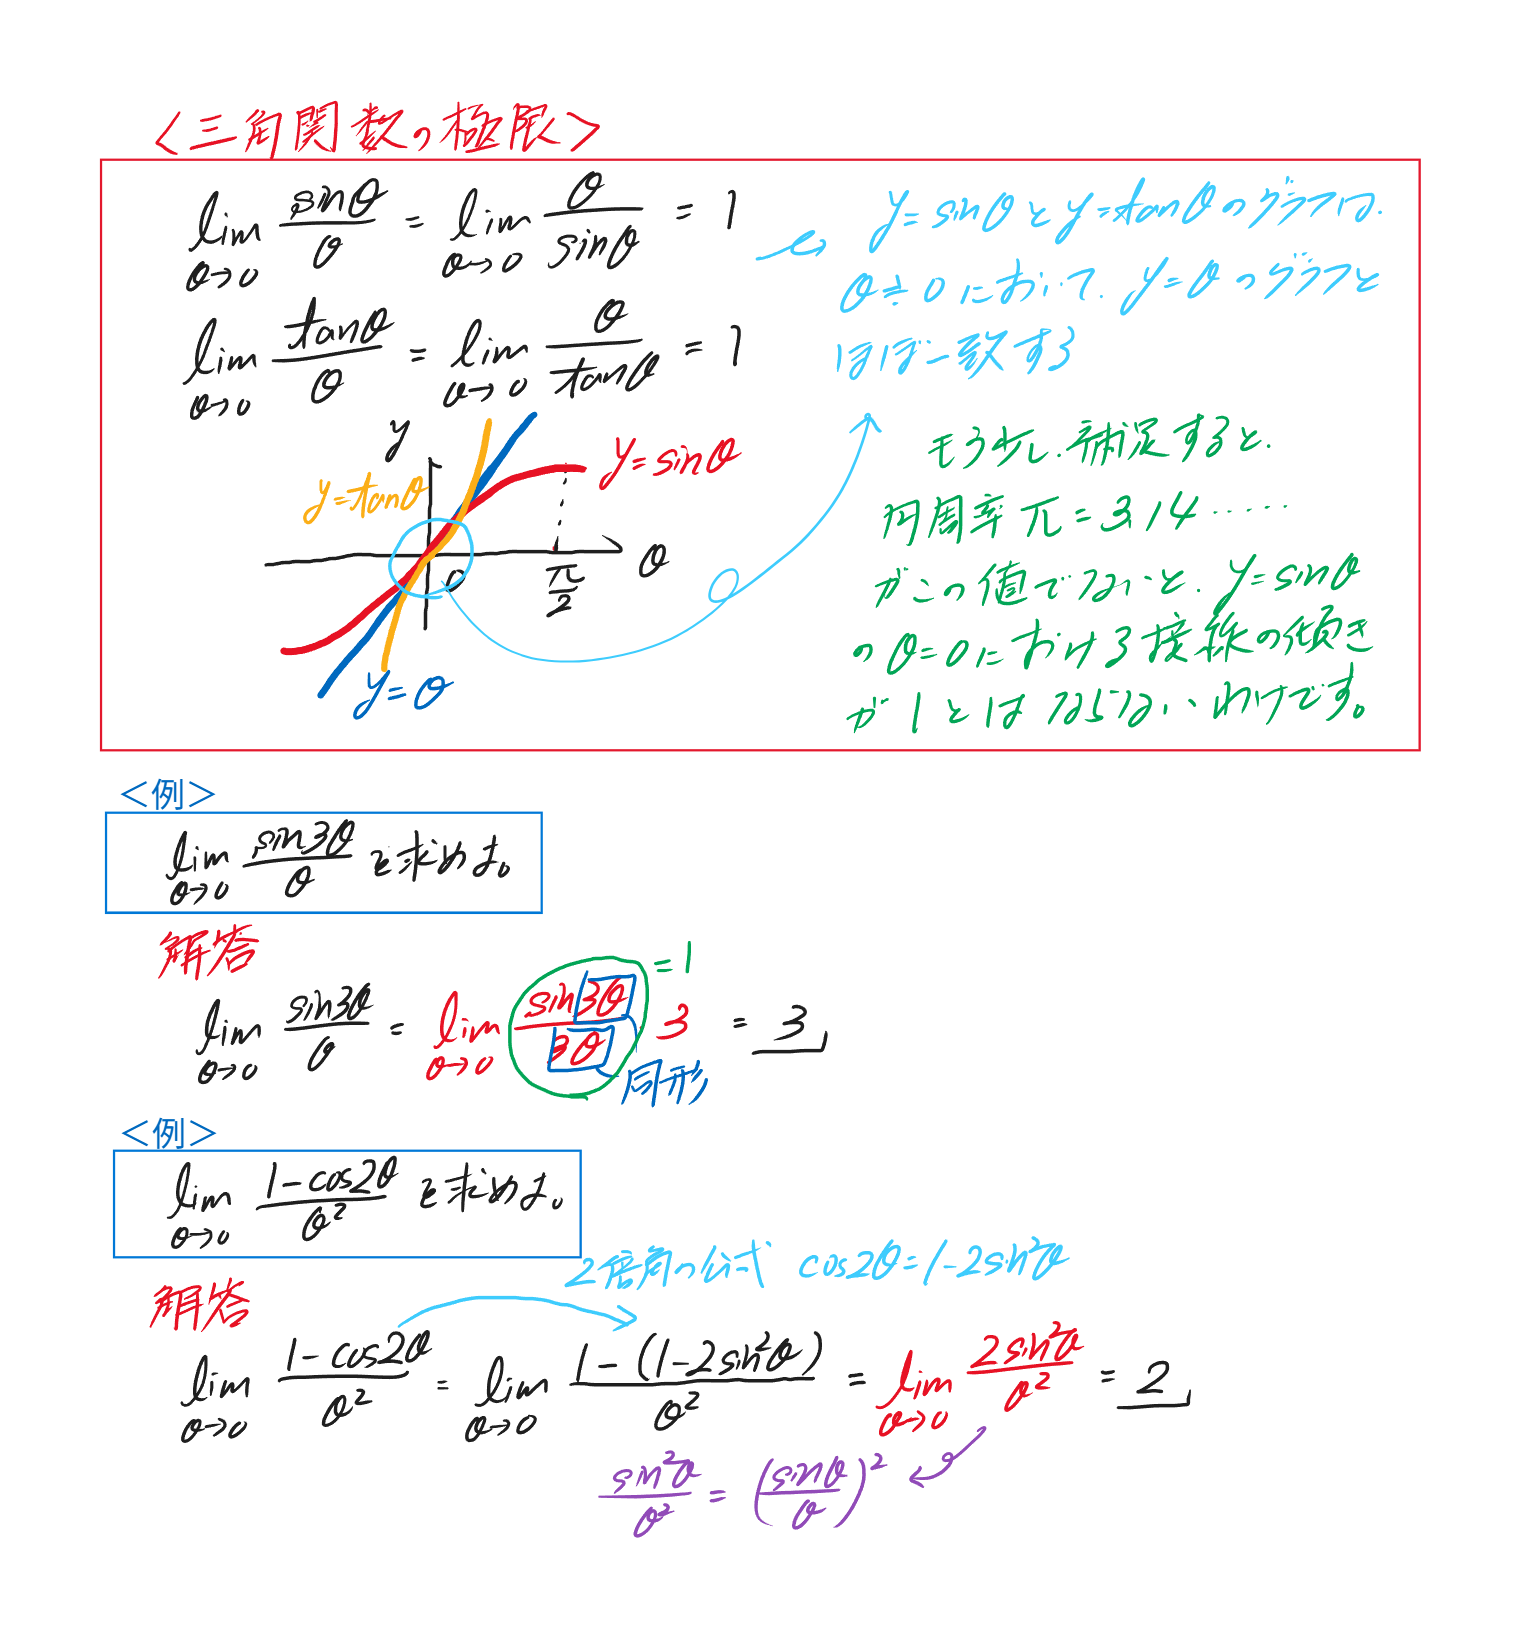 <三角関数の極限>
lim θ→0 sinθ/θ = lim θ→0 θ/sinθ = 1
lim θ→0 tanθ/θ = lim θ→0 θ/tanθ = 1
y=sinθとy=tanθのグラフは、
θ≒0において、y=θのグラフと
ほぼ一致する
y
y=tanθ
y=sinθ
θ
0
π/2
y=θ
もう少し補足すると、
円周率π=3.14……
がこの値でないと、y=sinθ
のθ=0における接線の傾き
が1とはならないわけです。
<例>
lim θ→0 sin3θ/θ を求めよ。
解答
lim θ→0 sin3θ/θ = lim θ→0 sin3θ/3θ 3 = 3
=1
同形
<例>
lim θ→0 1-cos2θ/θ² を求めよ。
2倍角の公式 cos2θ=1-2sin²θ
解答
lim θ→0 1-cos2θ/θ² = lim θ→0 1-(1-2sin²θ)/θ² = lim θ→0 2sin²θ/θ² = 2
sin²θ/θ² = (sinθ/θ)²